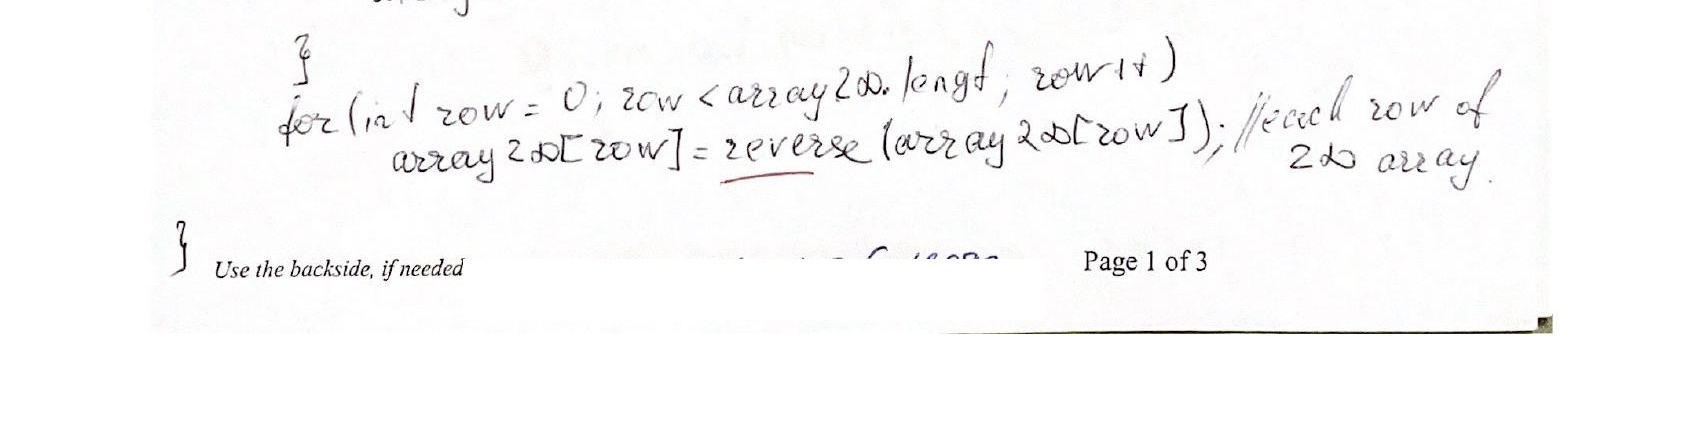 }
for (int row = 0; row < array2D.lengt; row++)
array2D[row] = reverse (array2D[row]); //each row of
2D array.
}
Use the backside, if needed
Page 1 of 3